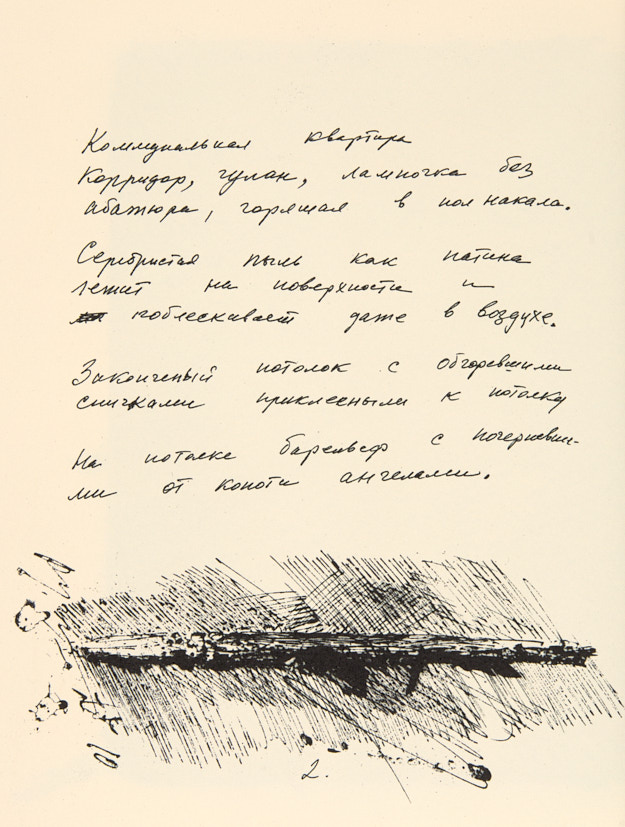 Коммунальная квартира
Корридор, чулан, лампочка без
абажюра, горящая в пол накала.
Серебристая пыль как патина
лежит на поверхности и
поблескивает даже в воздухе.
Закопченый потолок с обгоревшими
спичками приклееными к потолку
На потолке барельеф с почерневши-
ми от копоти ангелами.
2.